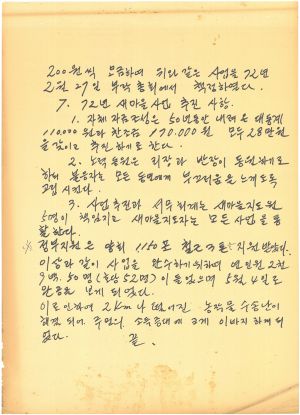 200원씩 모금하여 위와 같은 사업을 72년
2월 27일 부락 총회에서 책정하였다.
7. 72년 새마을사업 추진 사항.
1. 자체 자금조성은 50년동안 내려온 대동계
110,000원과 찬조금 170,000원 모두 28만원
을 갖이고 추진하기로 한다.
2. 노력동원은 리장과 반장이 동원하기로
하며 불응자는 모든 동민에게 부끄러움을 느끼도록
고립시킨다.
3. 사업추진과 서무회계는 새마을지도원
5명이 책임지고 새마을지도자는 모든 사업을 통
활한다.
정부지원은 양회 1150포 철근 3톤 지원받았다.
이상과 같이 사업을 완수하기위하여 연인원 2천
9백 50명 (호당 52명) 이 들었으며 5월 4일로
완공을 보게 되었다.
이로인하여 2km나 떨어진 농작물 수송난이
해결되어 주민의 소득증대에 크게 이바지하게 되
었다.
끝.